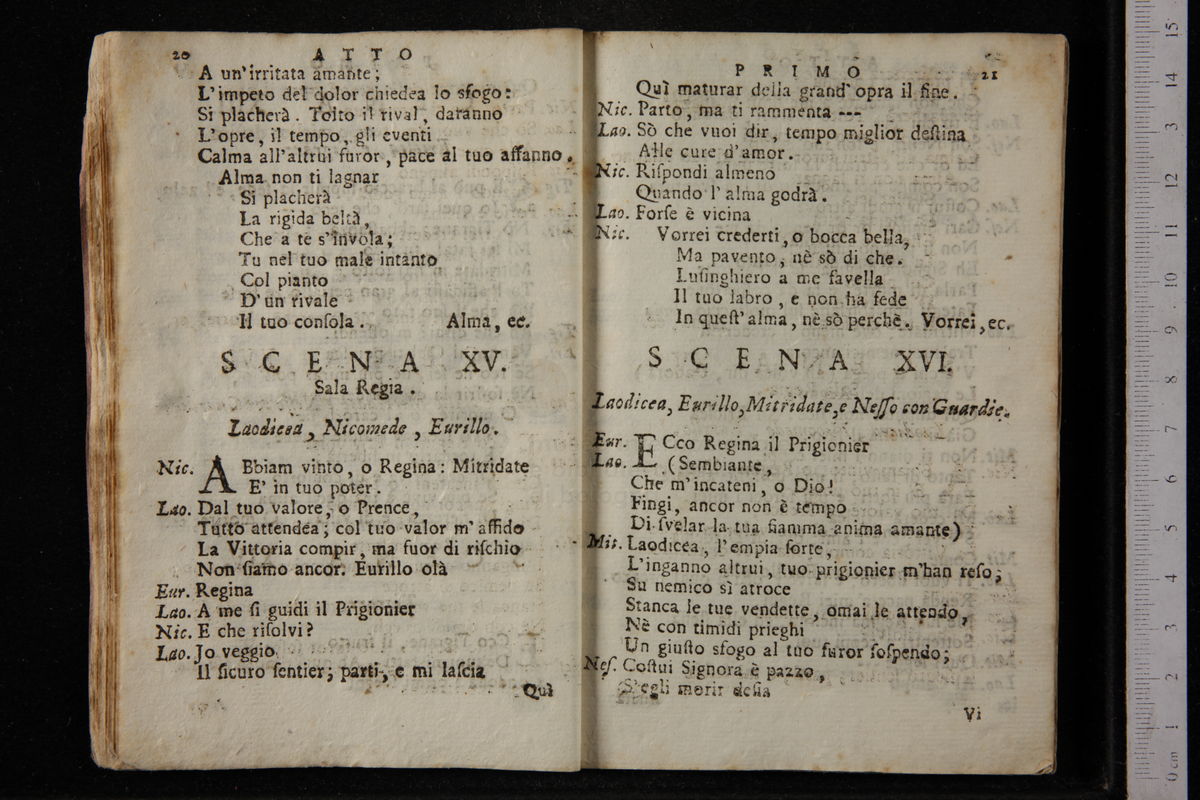 20 ATTO
A un'irritata amante;
L'impeto del dolor chiedea lo sfogo:
Si placherà. Tolto il rival, daranno
L'opre, il tempo, gli eventi
Calma all'altrui furor, pace al tuo affanno.
Alma non ti lagnar
Si placherà
La rigida beltà,
Che a te s'invola;
Tu nel tuo male intanto
Col pianto
D'un rivale
Il tuo conſola. Alma, ec.
SCENA XV.
Sala Regia.
Laodicea, Nicomede, Eurillo.
Nic. ABbiam vinto, o Regina: Mitridate
E' in tuo poter.
Lao. Dal tuo valore, o Prence,
Tutto attendea; col tuo valor m'affido
La Vittoria compir, ma fuor di riſchio
Non ſiamo ancor. Eurillo olà
Eur. Regina
Lao. A me ſi guidi il Prigionier
Nic. E che riſolvi?
Lao. Jo veggio
Il ſicuro ſentier; parti, e mi laſcia
Quì
PRIMO 21
Quì maturar della grand'opra il fine.
Nic. Parto, ma ti rammenta ---
Lao. Sò che vuoi dir, tempo miglior deſtina
Alle cure d'amor.
Nic. Riſpondi almeno
Quando l'alma godrà.
Lao. Forſe è vicina
Nic. Vorrei crederti, o bocca bella,
Ma pavento, nè sò di che.
Luſinghiero a me favella
Il tuo labro, e non ha fede
In queſt'alma, nè sò perchè. Vorrei, ec.
SCENA XVI.
Laodicea, Eurillo, Mitridate, e Neſſo con Guardie.
Eur. ECco Regina il Prigionier
Lao. (Sembiante,
Che m'incateni, o Dio!
Fingi, ancor non è tempo
Di ſvelar la tua fiamma anima amante)
Mit. Laodicea, l'empia ſorte,
L'inganno altrui, tuo prigionier m'han reſo;
Su nemico sì atroce
Stanca le tue vendette, omai le attendo,
Nè con timidi prieghi
Un giuſto sfogo al tuo furor ſoſpendo;
Neſ. Coſtui Signora è pazzo,
S'egli morir deſia
Vi